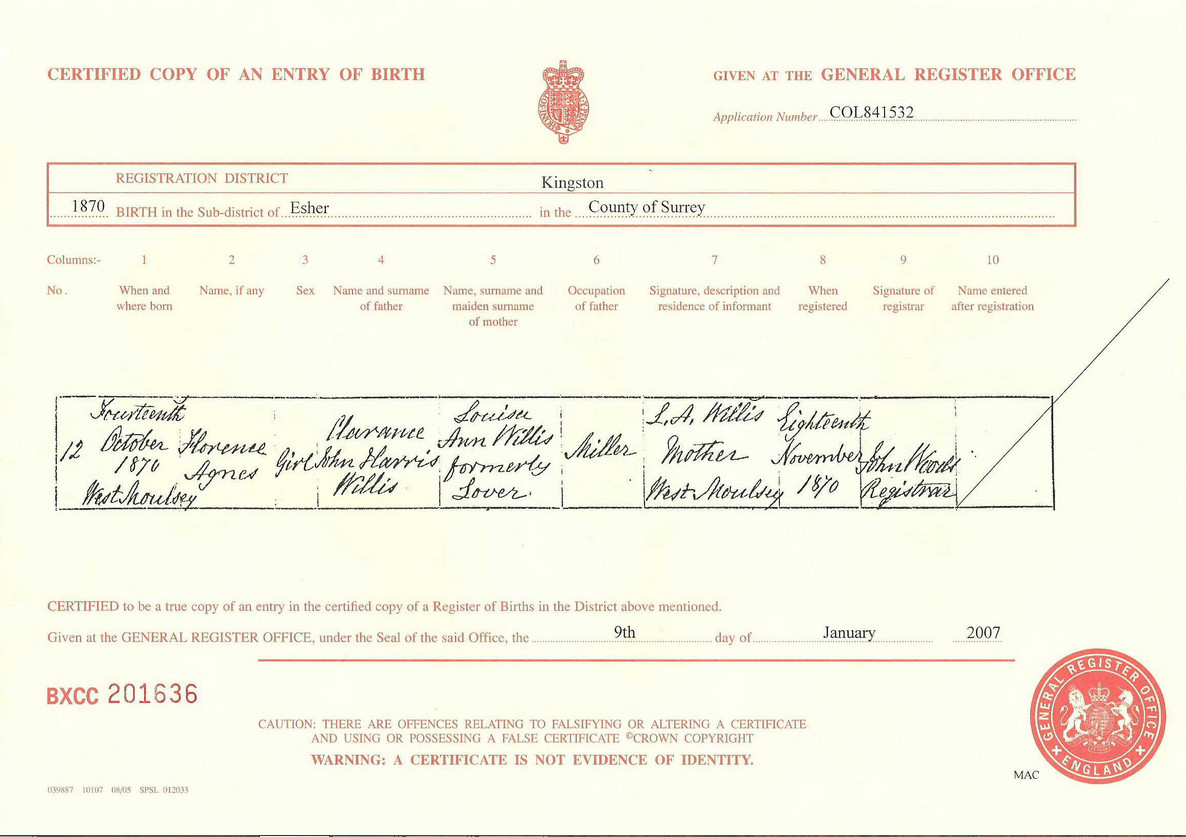 CERTIFIED COPY OF AN ENTRY OF BIRTH
GIVEN AT THE GENERAL REGISTER OFFICE
Application Number COL841532
REGISTRATION DISTRICT Kingston
1870 BIRTH in the Sub-district of Esher in the County of Surrey
Columns:- 1 2 3 4 5 6 7 8 9 10
No. When and where born
Name, if any
Sex
Name and surname of father
Name, surname and maiden surname of mother
Occupation of father
Signature, description and residence of informant
When registered
Signature of registrar
Name entered after registration
12
Fourteenth
October
1870
West Moulsey
Florence
Agnes
Girl
Clarance
John Harris
Willis
Louisa
Ann Willis
formerly
Lover
Miller
L. A. Willis
Mother
West Moulsey
Eighteenth
November
1870
John Woods
Registrar
CERTIFIED to be a true copy of an entry in the certified copy of a Register of Births in the District above mentioned.
Given at the GENERAL REGISTER OFFICE, under the Seal of the said Office, the 9th day of January 2007
BXCC 201636
CAUTION: THERE ARE OFFENCES RELATING TO FALSIFYING OR ALTERING A CERTIFICATE
AND USING OR POSSESSING A FALSE CERTIFICATE ©CROWN COPYRIGHT
WARNING: A CERTIFICATE IS NOT EVIDENCE OF IDENTITY.
GENERAL REGISTER OFFICE
ENGLAND
MAC
039887 10107 08/05 SPSL 012033